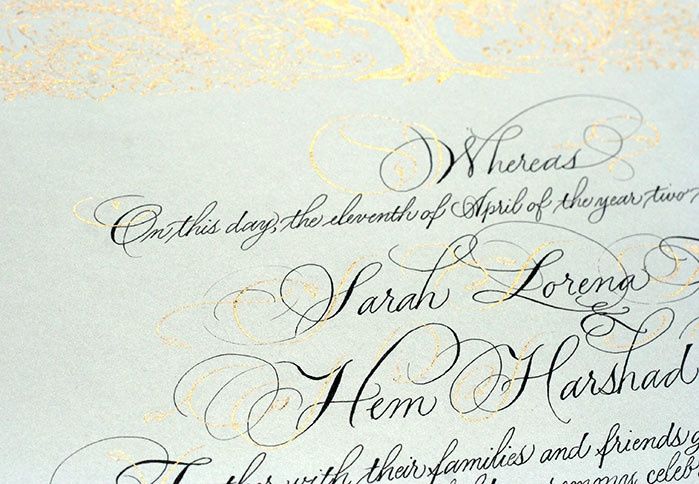 Whereas
On this day, the eleventh of April of the year two
Sarah Lorena
&
Hem Harshad
with their families and friends